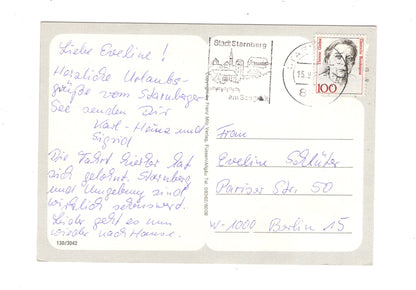 Liebe Eveline!
Herzliche Urlaubs-
grüße vom Starnberger
See senden Dir
Karl-Heinz und
Sigrid
Die Fahrt hierher hat
sich gelohnt. Starnberg
und Umgebung sind
wirklich sehenswert.
Leider geht es nun
wieder nach Hause.
130/3042
Stadt Starnberg
am See
15.
8
100
Frau
Eveline Schlüter
Pariser Str. 50
W-1000 Berlin 15